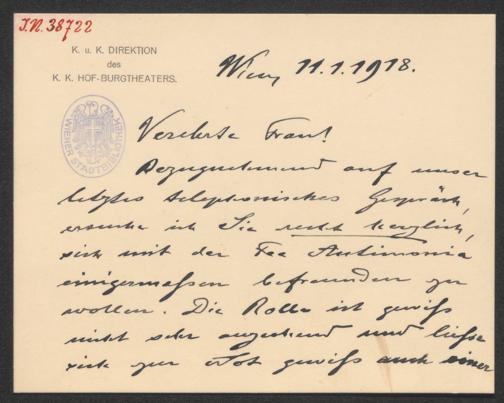 I.N. 38722
K. u. K. DIREKTION
des
K. K. HOF-BURGTHEATERS.
Wien, 11.1.1918.
WIENER STADTBIBLIOTHEK
Verehrte Frau!
Bezugnehmend auf unser
letztes telephonisches Gespräch,
ersuche ich Sie recht herzlich,
sich mit der Fee Antimonia
einigermaßen befreunden zu
wollen. Die Rolle ist gewiß
nicht sehr anziehend und ließe
sich zur Not gewiß auch einer